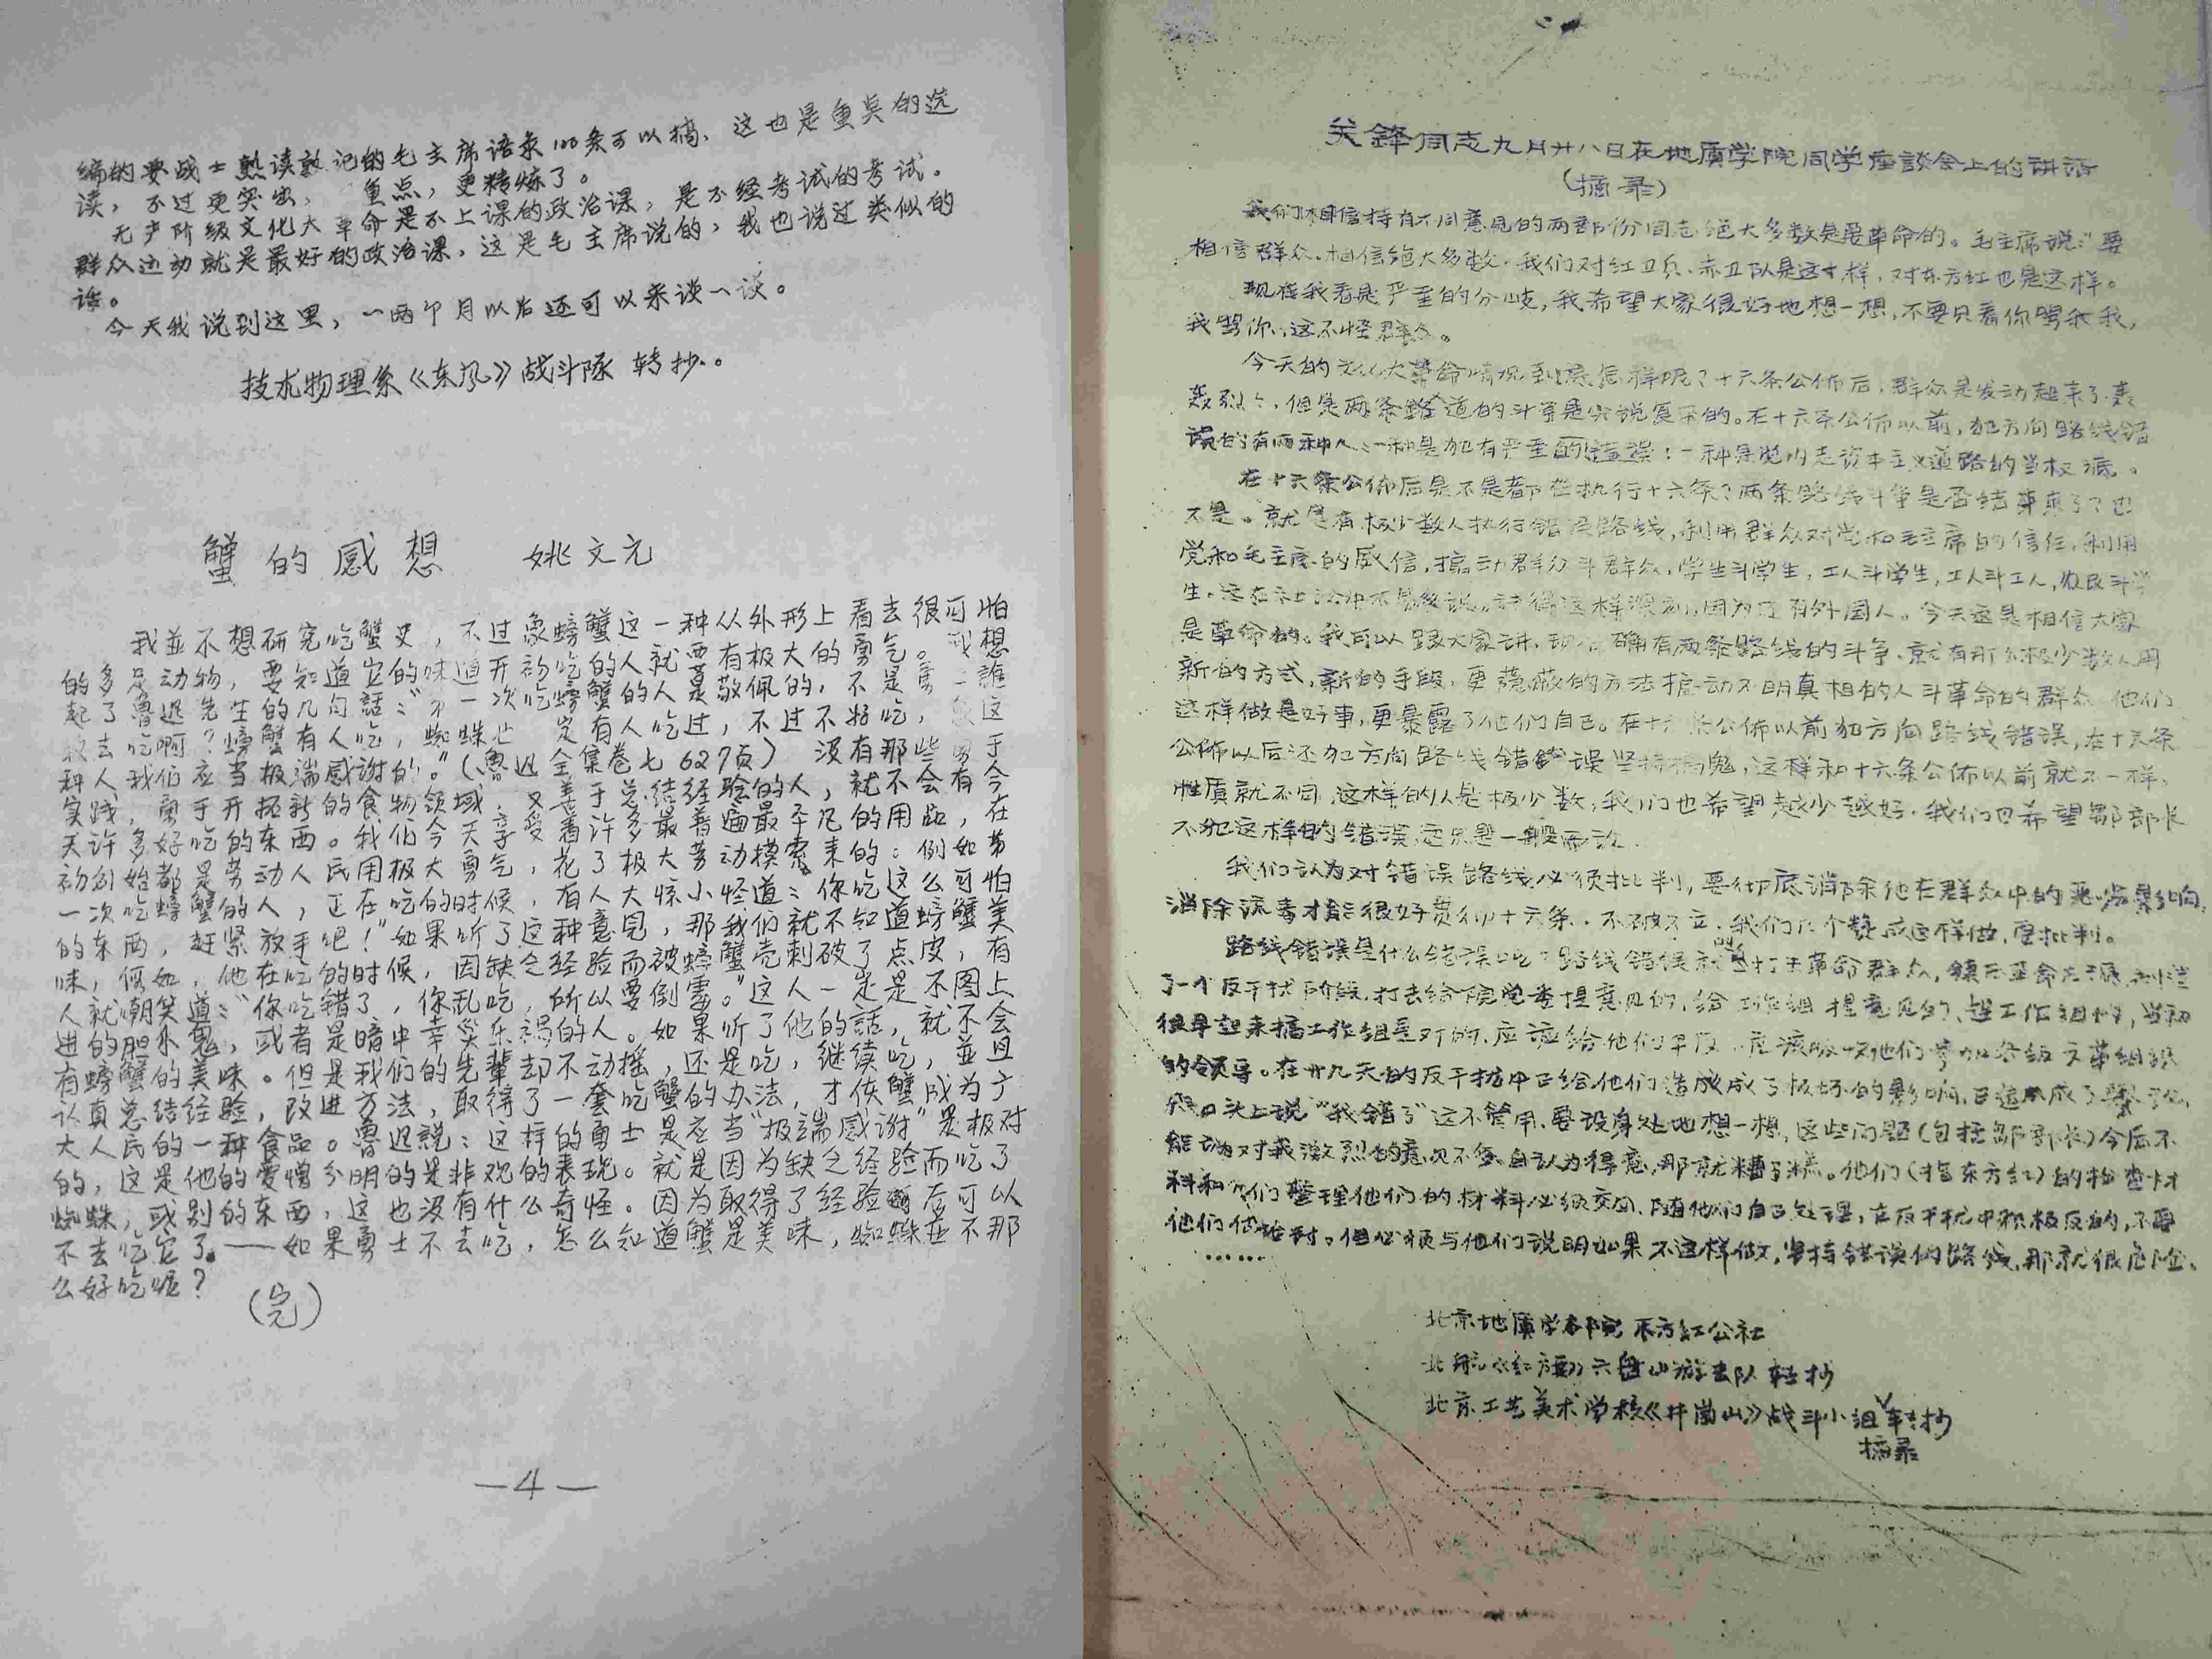 编的要战士熟读熟记的毛主席语录100条可以搞、这也是重点的选
读，不过更突出， 重点，更精炼了。
无产阶级文化大革命是不上课的政治课，是不经考试的考试。
群众运动就是最好的政治课，这是毛主席说的，我也说过类似的
话。
今天我说到这里，一两个月以后还可以来谈一谈。
技术物理系《东风》战斗队 转抄。
蟹的感想 姚文元
我並不想研究吃蟹史，不过象螃蟹这一种从外形上看去很可怕
的多足动物，要知道它的味道开初吃的人就要有极大的勇气。我想
起了魯迅先生的几句話：“第一次吃螃蟹的人是敬佩的，不是勇士誰
敢去吃啊？螃蟹有人吃，蜘蛛也一定有人吃过，不过不好吃，这
种人我们应当极端感谢的。”（魯迅全集卷七627页）没有那些勇于
实践，勇于开拓新的食物领域，又善于总结经验的人，就不会有今
天许多好吃的东西。我们今天享受着许多最普遍最平凡的用品，在
初创始都是劳动人民用极大勇气，花了极大劳动摸索来的：例如第
一次吃螃蟹的人，正在吃的时候，有人大惊小怪道：你吃这么可怕
的东西，赶紧放手吧！”如果听了这种意見，那我们就不知道螃蟹美
味，例如，他在吃的时候，因缺乏经验而被螃蟹壳刺破了点皮，有
人就嘲笑道：“你吃错了，你乱吃，所以要倒霉。”这人一定是不图上
进的胆小鬼，或者是暗中幸災乐祸的人。如果听了他的話，就不会
有螃蟹的美味。但是我们的先輩却不动摇，还是吃，继续吃，並且
认真总结经验，改进方法，取得了一套吃蟹的办法，才使蟹成为广
大人民的一种食品。魯迅説：这样的勇士是应当“极端感谢”是极对
的，这是他的爱憎分明的是非观的表现。就是因为缺乏经验而吃了
蜘蛛，或别的东西，这也没有什么奇怪。因为取得了经验后可以
不去吃它了。——如果勇士不去吃，怎么知道蟹是美味，蜘蛛並不那
么好吃呢？
（完）
—4—
关鋒同志九月廿八日在地质学院同学座談会上的讲话
（摘录）
我们相信持有不同意见的两部份同志绝大多数是要革命的。毛主席说：“要
相信群众，相信绝大多数，我们对红卫兵、赤卫队是这样，对东方红也是这样。
现在我看是严重的分岐，我希望大家很好地想一想，不要只看你骂我我，
我骂你，这不怪群众。
今天的文化大革命情况到底怎样呢？十六条公佈后，群众是发动起来了，轰
轰烈烈，但是两条道的斗争是尖锐复杂的。在十六条公佈以前，犯方向路线错
误的有两种人：一种是犯有严重的错误：一种是党内走资本主义道路的当权派。
在十六条公佈后是不是都在执行十六条？两条路线斗争是否结束了？也
不是。就是有极少数人执行错误路线，利用群众对党和毛主席的信任，利用
党和毛主席的威信，搞动群众斗群众，学生斗学生，工人斗学生，工人斗工人，农民斗学
生。这在不易说，讲得这样深刻，因为还有外国人。今天这是相信大家
是革命的。我可以跟大家讲，确有两条路线的斗争，就有那么极少数人用
新的方式，新的手段，更隐蔽的方法搞动不明真相的人斗革命的群众，他们
这样做是好事，更暴露了他们自己。在十六条公佈以前犯方向路线错误，在十六条
公佈以后还犯方向路线错误坚持搞鬼，这样和十六条公佈以前就不一样，
性质就不同，这样的人是极少数，我们也希望越少越好。我们也希望鄒部长
不犯这样的错误，这只是一般而论。
我们认为对错误路线必须批判，要彻底消除他在群众中的恶劣影响，
消除流毒才能很好贯彻十六条。不破不立，我们几个赞成这样做，要批判。
路线错误是什么错误呢？路线错误就是打击革命群众，鎮压革命左派，
了一个反干扰阶段，打击给院党委提意见的，给工作组提意见的，赶工作组的，当初
很早起来搞工作组是对的，应该给他们平反，应该欢迎他们参加各级文革组织
的领导。在廿几天的反干扰中已给他们造成了极坏的影响，
口头上说“我错了”这不管用，要设身处地想一想，这些问题（包括鄒部长）今后不
能说对我激烈的意见不多，自认为得意，那就糟了糕。他们（指东方红）的检查材
料和人们整理他们的材料必须交回，随他们自己处理，在反干扰中积极反的，不要
他们作检讨。但必须与他们说明如果不这样做，坚持错误的路线，那就很危险。
……
北京地质学院东方红公社
北航《红旗》六盘山游击队转抄
北京工艺美术学校《井岗山》战斗小组转抄
摘录